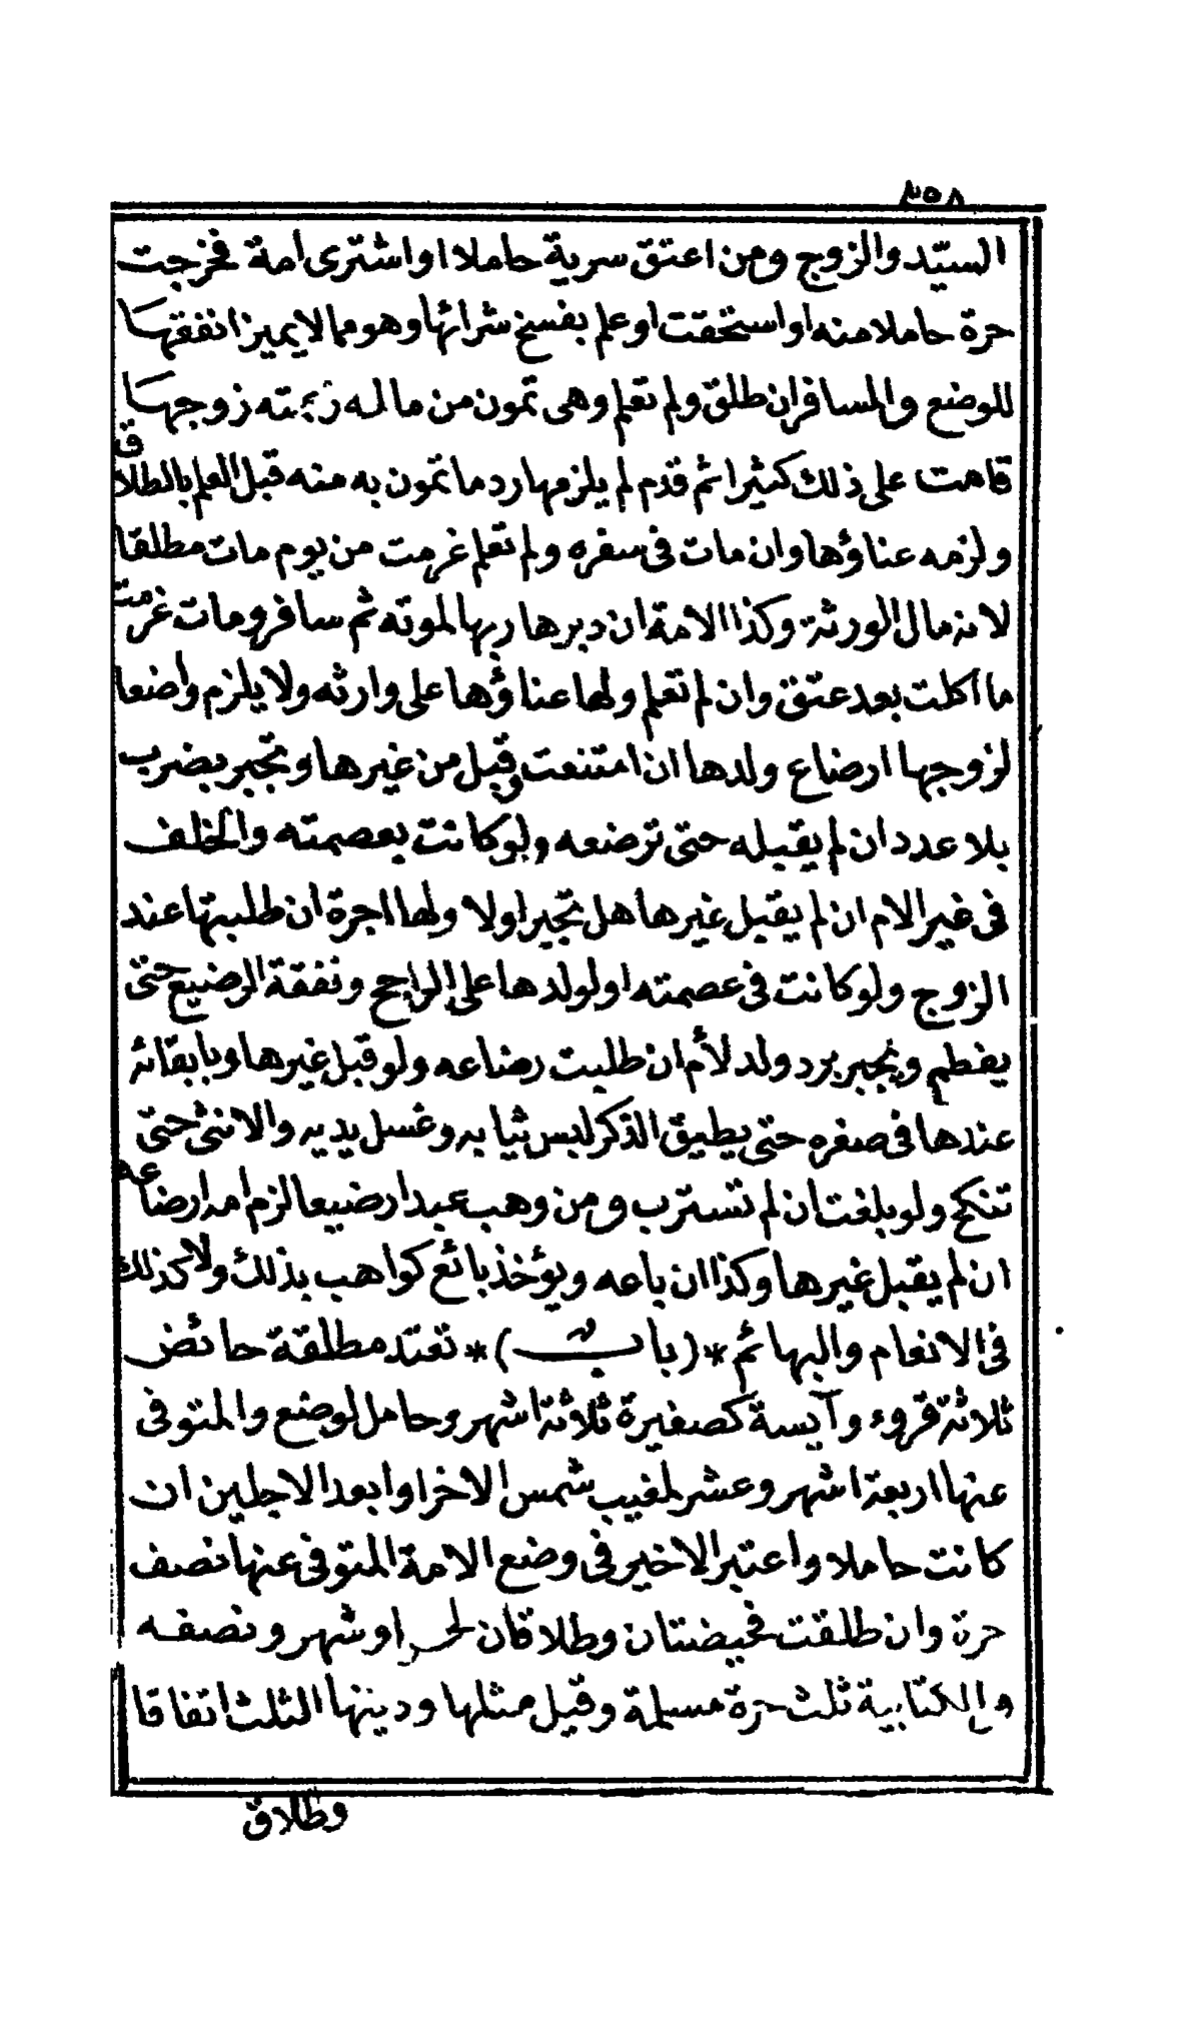 ٣٥٨
السيّد والزوج ومن اعتق سرية حاملا او اشترى امة فخرجت
حرة حاملا منه او استحقت او علم بفسخ شرائها وهو مما لا يميز انفقها
للوضع والمسافر ان طلق ولم تعلم وهى تمون من ماله زوجها
قامت على ذلك كثيرا ثم قدم لم يلزمها رد ما تمون به منه قبل العلم بالطلاق
ولزمه عناؤها وان مات فى سفره ولم تعلم غرمت من يوم مات مطلقا
لانه مال الورثة وكذا الامة ان دبرها ربها لموته ثم سافر ومات غرمت
ما اكلت بعد عتق وان لم تعلم ولها عناؤها على وارثه ولا يلزم واضعا
لزوجها ارضاع ولدها ان امتنعت وقبل من غيرها وتجبر بضرب
بلا عدد ان لم يقبله حتى ترضعه ولو كانت بعصمته والخلف
فى غير الام ان لم يقبل غيرها هل تجبر اولا ولها اجرة ان طلبتها عند
الزوج ولو كانت فى عصمته او لولدها على الراجح ونفقة الرضيع حتى
يفطم ويجبر برد ولد لأم ان طلبت رضاعه ولو قبل غيرها وبابقائه
عندها فى صغره حتى يطيق الذكر لبس ثيابه وغسل يديه والانثى حتى
تنكح ولو بلغت ان لم تسترب ومن وهب عبدا رضيعا الزم امه ارضاعه
ان لم يقبل غيرها وكذا ان باعه ويؤخذ بائع كواهب بذلك ولا كذلك
فى الانعام والبهائم * (باب) * تعتد مطلقة حائض
ثلاثة قروء وآيسة كصغيرة ثلاثة اشهر وحامل لوضع والمتوفى
عنها اربعة اشهر وعشر لمغيب شمس الاخر او ابعد الاجلين ان
كانت حاملا واعتبر الاخير فى وضع الامة المتوفى عنها نصف
حرة وان طلقت فحيضتان وطلاقان لحر او شهر ونصفه
والكتابية ثلث حرة مسلمة وقيل مثلها ودينها الثلث اتفاقا
وطلاق